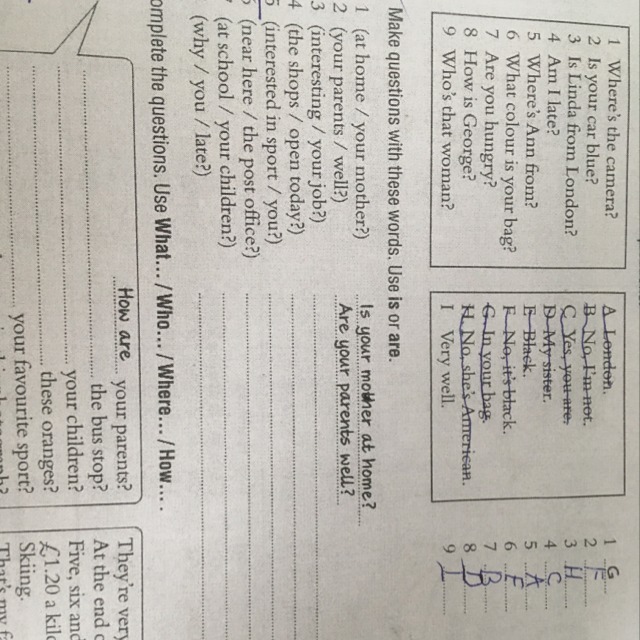 1 Where's the camera?
2 Is your car blue?
3 Is Linda from London?
4 Am I late?
5 Where's Ann from?
6 What colour is your bag?
7 Are you hungry?
8 How is George?
9 Who's that woman?
A London.
B No, I'm not.
C Yes, you are.
D My sister.
E Black.
F No, it's black.
G In your bag.
H No, she's American.
I Very well.
1 G
2 F
3 H
4 C
5 A
6 E
7 B
8 D
9 I
Make questions with these words. Use is or are.
1 (at home / your mother?) Is your mother at home?
2 (your parents / well?) Are your parents well?
3 (interesting / your job?)
4 (the shops / open today?)
5 (interested in sport / you?)
(near here / the post office?)
(at school / your children?)
(why / you / late?)
the questions. Use What... / Who... / Where... / How... .
How are your parents?
the bus stop?
your children?
these oranges?
your favourite sport?
They're very
At the end
Five, six and
£1.20 a
Skiing.
That's my